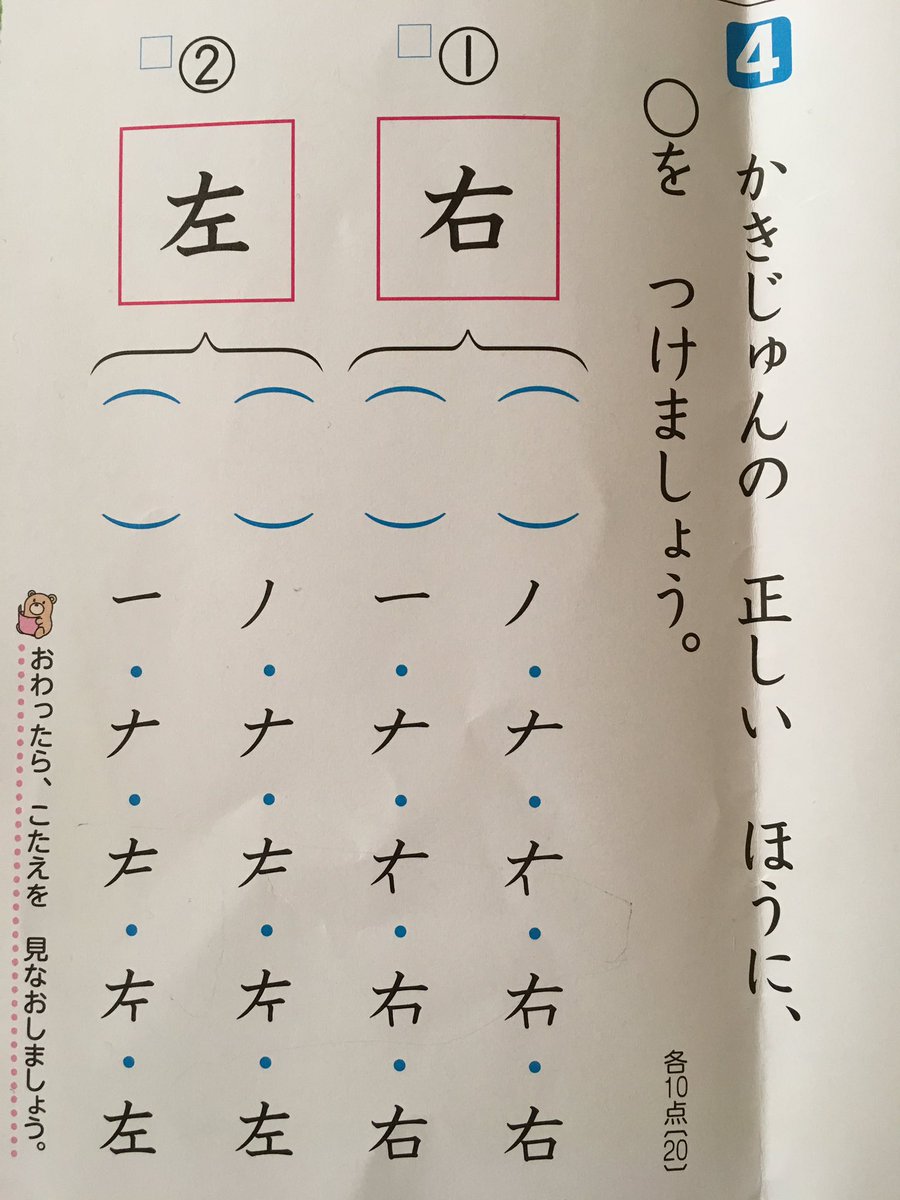 4 かきじゅんの 正しい ほうに、
○を つけましょう。
各10点〔20〕
① 右
ノ・ナ・オ・右・右
一・ナ・オ・右・右
② 左
ノ・ナ・左・左
一・ナ・左・左
おわったら、こたえを 見なおしましょう。